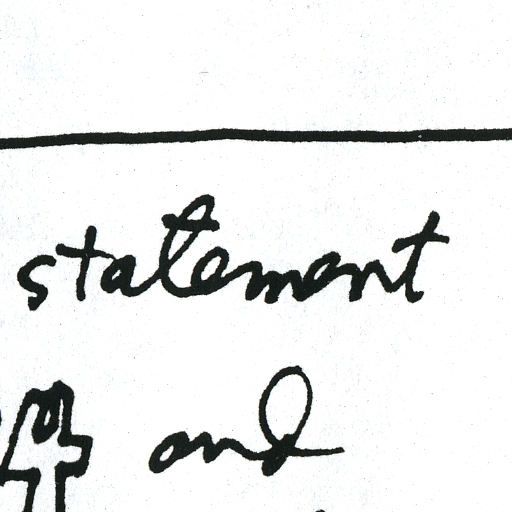 statement
and